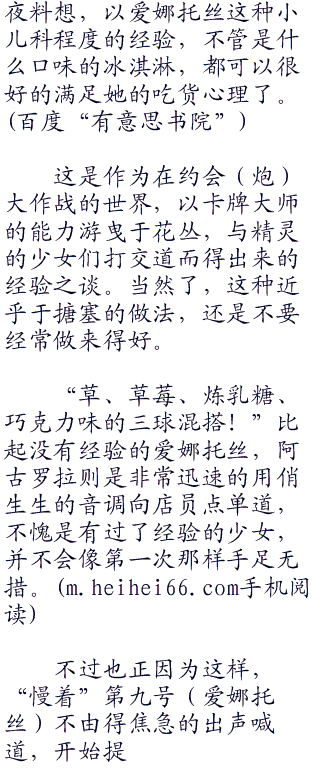 夜料想，以爱娜托丝这种小
儿科程度的经验，不管是什
么口味的冰淇淋，都可以很
好的满足她的吃货心理了。
(百度“有意思书院”)
这是作为在约会（炮）
大作战的世界，以卡牌大师
的能力游曳于花丛，与精灵
的少女们打交道而得出来的
经验之谈。当然了，这种近
乎于搪塞的做法，还是不要
经常做来得好。
“草、草莓、炼乳糖、
巧克力味的三球混搭！”比
起没有经验的爱娜托丝，阿
古罗拉则是非常迅速的用俏
生生的音调向店员点单道，
不愧是有过了经验的少女，
并不会像第一次那样手足无
措。(m.heihei66.com手机阅
读)
不过也正因为这样，
“慢着”第九号（爱娜托
丝）不由得焦急的出声喊
道，开始提